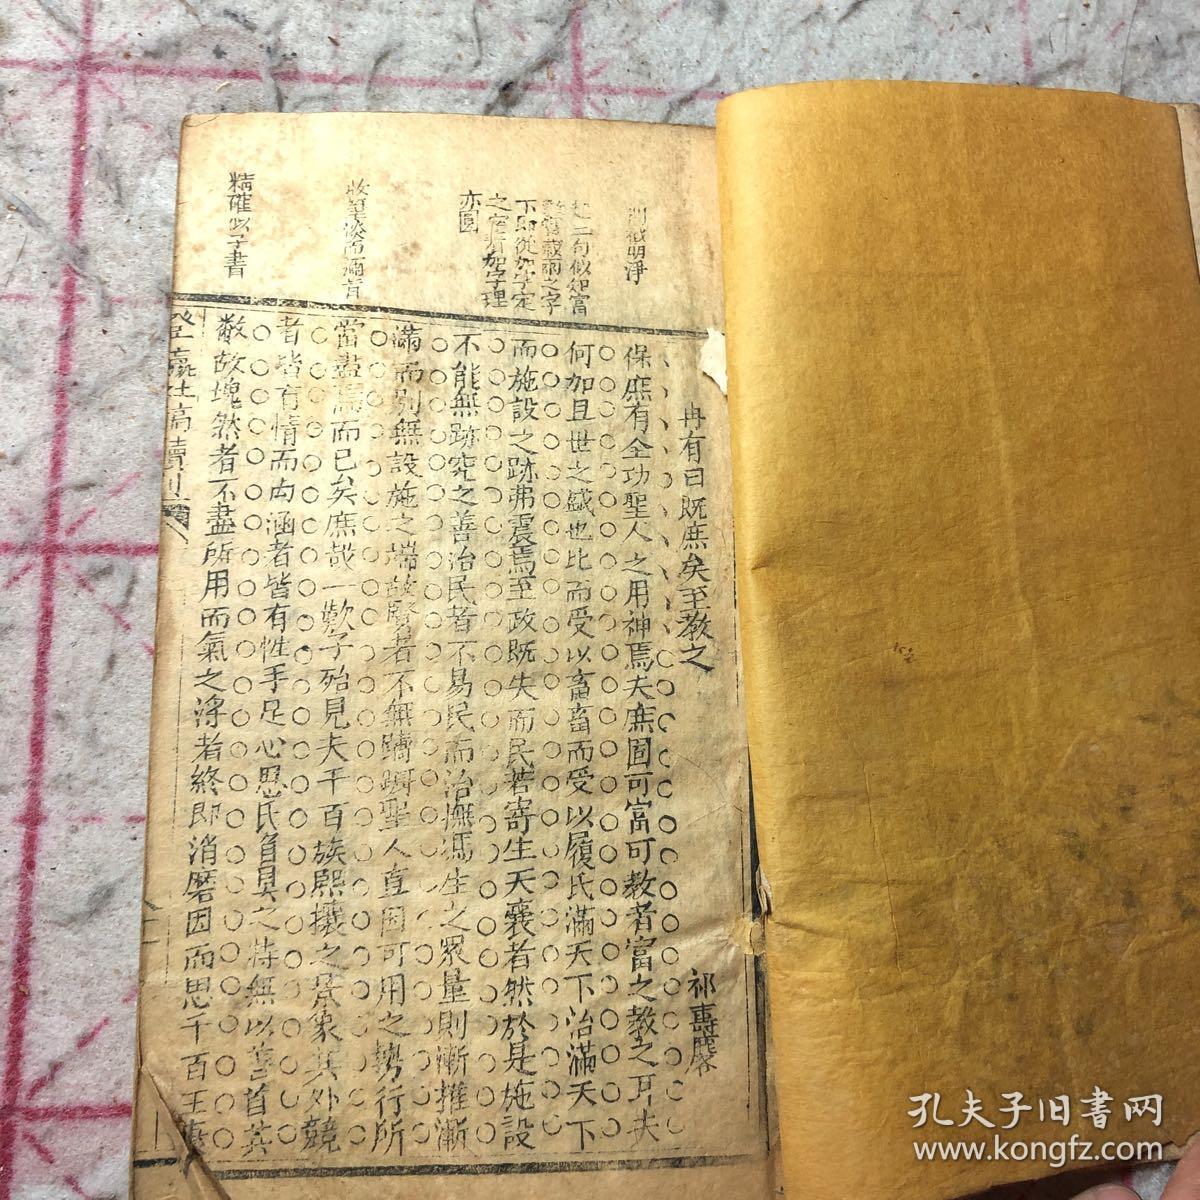 冉有曰既庶矣至教之
祁寯藻
保庶有全功聖人之用神焉夫庶固可富可教者富之教之耳夫
何加且世之盛也比而受以畜畜而受以履民滿天下治滿天下
而施設之跡弗震焉至政既失而民若寄生天襄者然於是施設
不能無跡究之善治民者不易民而治撫馮生之眾量則漸推漸
滿而別無設施之端故賢者不無躊躇聖人直因可用之勢行所
當盡焉而已矣庶哉一歎子殆見夫千百族熙攘之景象其外競
者皆有情而內涵者皆有性手足心思民自具之特無以善首其
敝故塊然者不盡所用而氣之浮者終即消磨因而思千百王
明淨
二句似如富
雨之字
下即從加字定
之富有加字理
亦圓
淡而
精確似子書
登瀛社稿續刊
孔夫子旧書网
www.kongfz.com